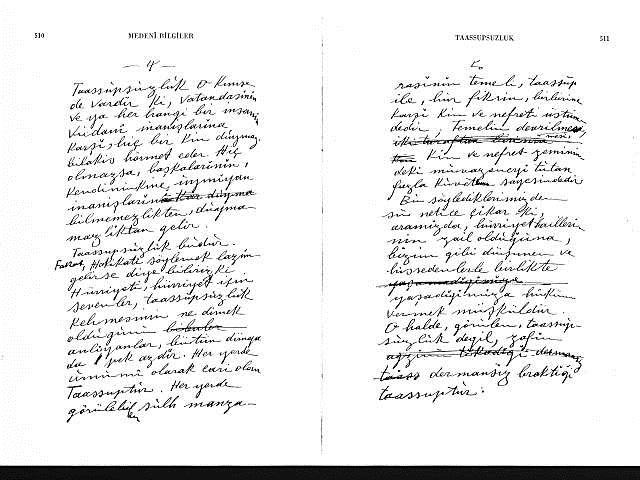 510 MEDENÎ BİLGİLER
— 4 —
Taassupsuzluk O kimse
de vardır ki, vatandaşının
ve ya her hangi bir insanın
vicdanî inanışlarına
karşı, hiç bir kin duymaz;
bilakis hürmet eder. Hiç
olmazsa, başkalarının,
kendininkine uymıyan
inanışlarını
bilmemezlikten, duyma-
mazlıktan gelir.
Taassupsuzluk budur.
Fakat, Hakikatı söylemek lazım
gelirse diyebiliriz ki
Hürriyeti, hürriyet için
sevenler, taassupsuzluk
kelimesinin ne demek
olduğunu bilenler
anlıyanlar, bütün dünya
da pek azdır. Her yerde
umumî olarak cari olan
Taassuptur. Her yerde
görülebilen sulh manza-
TAASSUPSUZLUK 511
5.
rasının temeli, taassup
ile, bir fikrin, birbirine
karşı kin ve nefreti üstün
dedir, temelin devrilmemesi
kin ve nefret zeminin
deki müvazeneyi tutan
fazla kuvvet sayesindedir
Bu söylediklerimizden
şu netice çıkar ki,
aramızda, hürriyet
nin zail olduğuna,
bizim gibi düşünen ve
hissedenlerle birlikte
yaşamadığımıza
yaşadığımıza hüküm
vermek müşküldür.
O halde, görülen, taassup-
suzluk değil, zafın
dermansız bıraktığı
taassuptur.